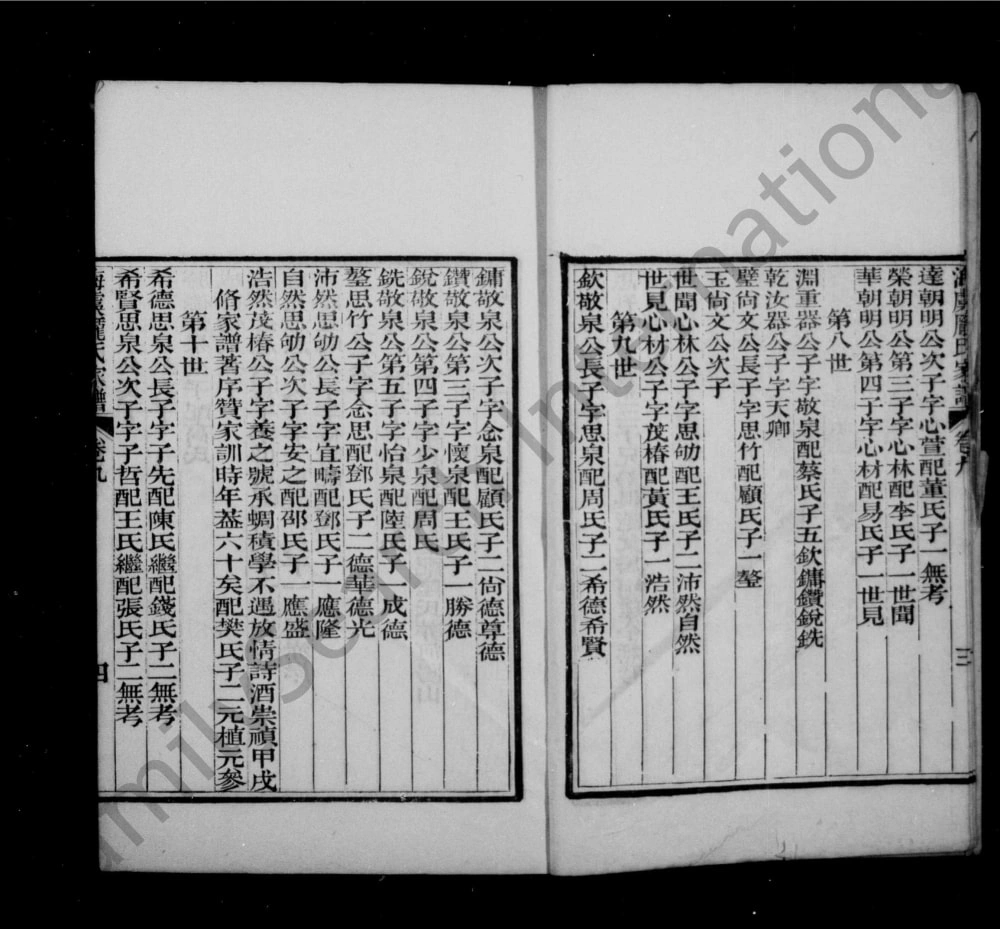 海虞龐氏家譜 卷九 三
達朝明公次子字心萱配董氏子一無考
榮朝明公第三子字心林配李氏子一世聞
華朝明公第四子字心材配易氏子一世見
第八世
淵重器公子字敬泉配蔡氏子五欽鏞鑽銳銑
乾汝器公子字天卿
璧尙文公長子字思竹配顧氏子一鏊
玉尙文公次子
世聞心林公子字思劬配王氏子二沛然自然
世見心材公子字茂椿配黃氏子一浩然
第九世
欽敬泉公長子字思泉配周氏子二希德希賢
鏞敬泉公次子字念泉配顧氏子二尙德尊德
鑽敬泉公第三子字懷泉配王氏子一勝德
銳敬泉公第四子字少泉配周氏
銑敬泉公第五子字怡泉配陸氏子一成德
鏊思竹公子字念思配鄧氏子二德華德光
沛然思劬公長子字宜疇配鄧氏子一應隆
自然思劬公次子字安之配邵氏子一應盛
浩然茂椿公子字養之號承蜩積學不遇放情詩酒崇禎甲戌
脩家譜著序贊家訓時年葢六十矣配樊氏子二元植元參
第十世
希德思泉公長子字子先配陳氏繼配錢氏子二無考
希賢思泉公次子字子哲配王氏繼配張氏子二無考
海虞龐氏家譜 卷九 四
Family Search International